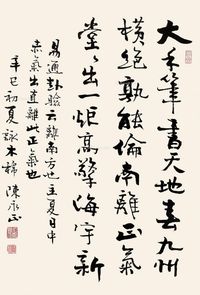 大手筆書天地春九州
橫絕孰能倫南離正氣
堂堂出一炬高擎海宇新
易通卦驗云離南方也主夏日中
赤氣出直離此正氣也
辛巳初夏詠木棉 陳永正